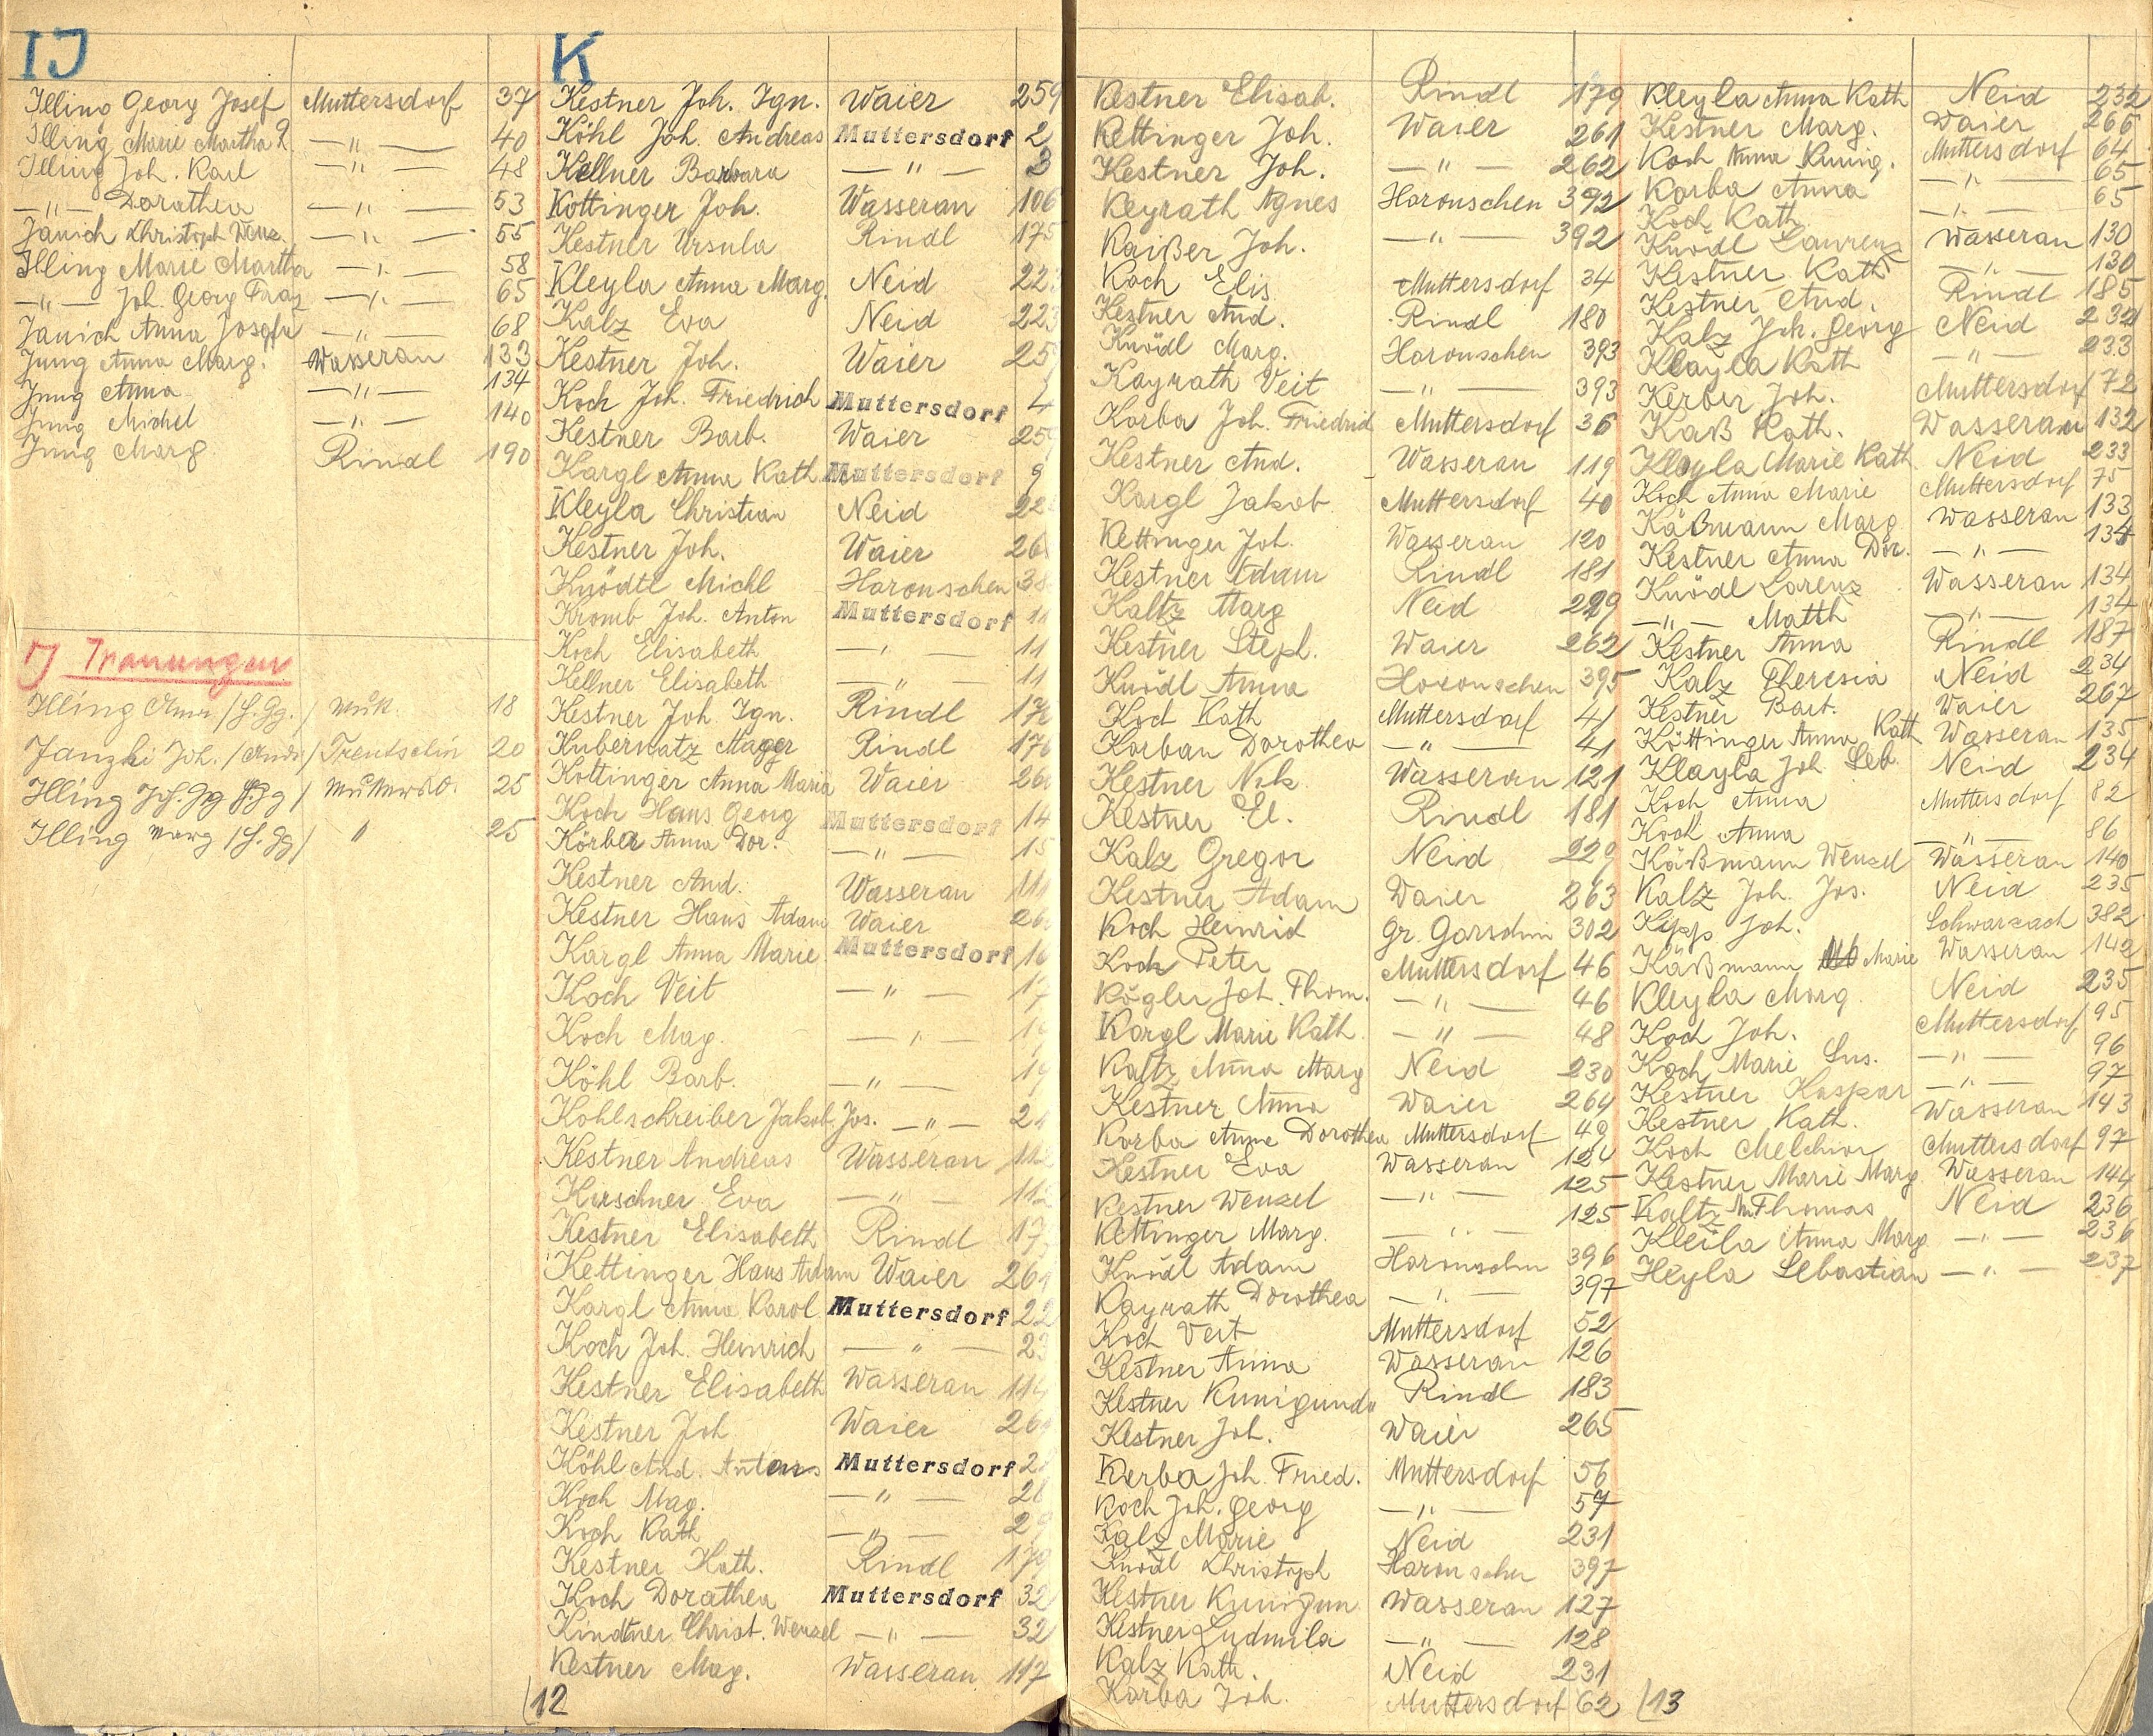 IJ
Illing Georg Josef Muttersdorf 37
Illing Marie Martha R. —"— 40
Illing Joh. Karl —"— 48
—"— Dorathea —"— 53
Janich Christoph Wenz. —"— 55
Illing Marie Martha —"— 58
—"— Joh. Georg Franz —"— 65
Janich Anna Josefa —"— 68
Jung Anna Marg. Wasserau 133
Jung Anna —"— 134
Jung Michel —"— 140
Jung Marg. Rindl 190
IJ Trauungen
Illing /H. Gg./ Mutt. 18
Janzki Joh. /Andr./ 20
Illing Joh. Gg /H. Gg/ Muttersd. 25
Illing Marg /H. Gg/ " 25
K
Kestner Joh. Ign. Waier 259
Köhl Joh. Andreas Muttersdorf 2
Kellner Barbara —"— 3
Kottinger Joh. Wasserau 106
Kestner Ursula Rindl 175
Kleyla Anna Marg. Neid 223
Kalz Eva Neid 223
Kestner Joh. Waier 25
Koch Joh. Friedrich Muttersdorf 4
Kestner Barb. Waier 259
Kargl Anna Kath Muttersdorf 9
Kleyla Christian Neid 22
Kestner Joh. Waier 26
Knödtl Michl Haronschen 38
Kromb Joh. Anton Muttersdorf 11
Koch Elisabeth —"— 11
Kellner Elisabeth —"— 11
Kestner Joh. Ign. Rindl 176
Kubernatz Rindl 176
Kottinger Anna Maria Waier 260
Koch Hans Georg Muttersdorf 14
Körber Anna Dor. —"— 15
Kestner And. Wasserau 111
Kestner Hans Adam Waier 26
Kargl Anna Marie Muttersdorf 16
Koch Veit —"— 17
Koch Mag. —"— 19
Köhl Barb. —"— 19
Kohlschreiber Jakob Jos. —"— 21
Kestner Andreas Wasserau 112
Kirschner Eva —"— 112
Kestner Elisabeth Rindl 17
Kettinger Hans Adam Waier 261
Kargl Anna Karol. Muttersdorf 22
Koch Joh. Heinrich —"— 23
Kestner Elisabeth Wasserau 114
Kestner Joh Waier 261
Köhl And. Antons Muttersdorf 2
Koch Mag. —"— 28
Koch Kath —"— 29
Kestner Kath. Rindl 179
Koch Dorathea Muttersdorf 32
Kindtner Christ. Wenzel —"— 32
Kestner Mag. Wasserau 117
12
Kestner Elisab. Rindl 179
Kettinger Joh. Waier 261
Kestner Joh. —"— 262
Keyrath Agnes Haronschen 392
Kaißer Joh. —"— 392
Koch Elis Muttersdorf 34
Kestner And. Rindl 180
Knödl Marg. Haronschen 393
Kayrath Veit —"— 393
Korba Joh. Friedrich Muttersdorf 36
Kestner And. Wasserau 119
Kargl Jakob Muttersdorf 40
Kettinger Joh. Wasserau 120
Kestner Adam Rindl 181
Kaltz Marg Neid 229
Kestner Steph. Waier 262
Knödl Anna Haronschen 395
Koch Kath Muttersdorf 41
Korban Dorothea —"— 41
Kestner Nik. Wasserau 121
Kestner El. Rindl 181
Kalz Gregor Neid 229
Kestner Adam Waier 263
Koch Heinrich Gr. Gorschin 302
Koch Peter Muttersdorf 46
Kögler Joh. Thom. —"— 46
Kargl Marie Kath. —"— 48
Kaltz Anna Marg Neid 230
Kestner Anna Waier 264
Korba Anna Dorothea Muttersdorf 49
Kestner Eva Wasserau 124
Kestner Wenzel —"— 125
Kettinger Marg. —"— 125
Knödl Adam Haronschen 396
Kayrath Dorothea —"— 397
Koch Veit Muttersdorf 52
Kestner Anna Wasserau 126
Kestner Kunigunda Rindl 183
Kestner Joh. Waier 265
Kerba Joh. Fried. Muttersdorf 56
Koch Joh. Georg —"— 57
Kalz Marie Neid 231
Knödl Christoph Haronschen 397
Kestner Kunigun Wasserau 127
Kestner Ludmila —"— 128
Kalz Kath. Neid 231
Korba Joh. Muttersdorf 62
Kleyla Anna Kath Neid 232
Kestner Marg. Waier 266
Koch Anna Kunig. Muttersdorf 64
Korba Anna —"— 65
Koch Kath —"— 65
Knödl Laurenz Wasserau 130
Kestner Kath —"— 130
Kestner And. Rindl 185
Kalz Joh. Georg Neid 232
Klayla Kath —"— 233
Kerber Joh. Muttersdorf 72
Kaß Kath. Wasserau 132
Kleyla Marie Kath Neid 233
Koch Anna Marie Muttersdorf 75
Käßmann Marg Wasserau 133
Kestner Anna Dor. —"— 134
Knödl Lorenz Wasserau 134
—"— Matth —"— 134
Kestner Anna Rindl 187
Kalz Theresia Neid 234
Kestner Barb. Waier 267
Köttinger Anna Kath Wasserau 135
Klayla Joh Seb. Neid 234
Koch Anna Muttersdorf 82
Koch Anna —"— 86
Käßmann Wenzel Wasserau 140
Kalz Joh. Jos. Neid 235
Kipp Joh. Schwarzach 382
Käßmann Marie Wasserau 142
Kleyla Marg Neid 235
Koch Joh. Muttersdorf 95
Koch Marie Sus. —"— 96
Kestner Kaspar —"— 97
Kestner Kath. Wasserau 143
Koch Melchior Muttersdorf 97
Kestner Marie Marg Wasserau 144
Kaltz Thomas Neid 236
Kleila Anna Marg —"— 236
Kleyla Sebastian —"— 237
13